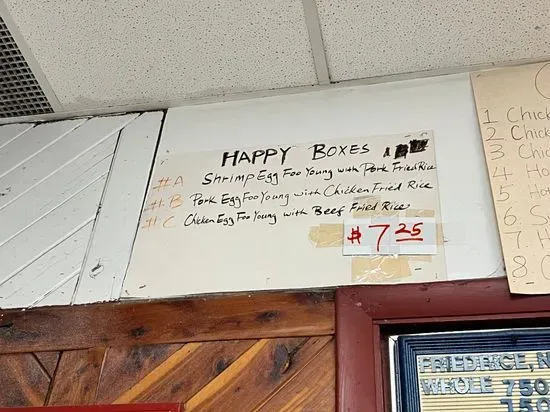 HAPPY BOXES
#A Shrimp Egg Foo Young with Pork Fried Rice
#B Pork Egg Foo Young with Chicken Fried Rice
#C Chicken Egg Foo Young with Beef Fried Rice
$7.25
1 Chick
2 Chick
3 Chic
4 Ho
5 Ho
6. S
7. H
8. C
FRIEDRICE, N
WHOLE 750
750